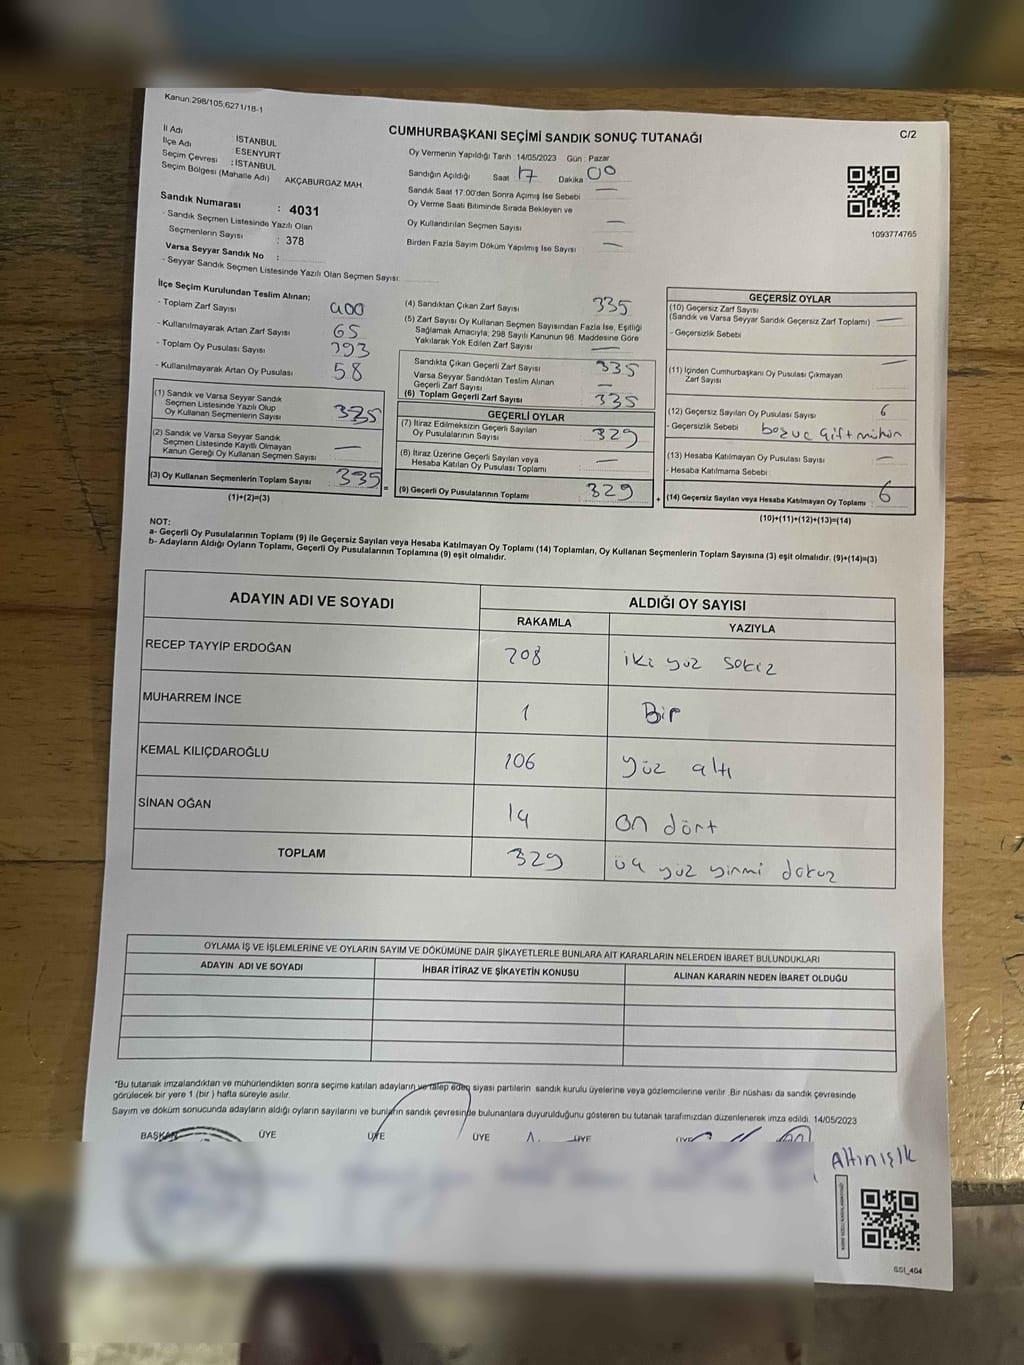 Kanun:298/105,6271/18-1
C/2
CUMHURBAŞKANI SEÇİMİ SANDIK SONUÇ TUTANAĞI
İl Adı : İSTANBUL
İlçe Adı : ESENYURT
Seçim Çevresi : İSTANBUL
Seçim Bölgesi (Mahalle Adı) : AKÇABURGAZ MAH.
Sandık Numarası : 4031
- Sandık Seçmen Listesinde Yazılı Olan
Seçmenlerin Sayısı : 378
Varsa Seyyar Sandık No :
- Seyyar Sandık Seçmen Listesinde Yazılı Olan Seçmen Sayısı:
Oy Vermenin Yapıldığı Tarih :14/05/2023 Gün : Pazar
Sandığın Açıldığı Saat 17 Dakika 00
Sandık Saat 17:00'den Sonra Açımış İse Sebebi —
Oy Verme Saati Bitiminde Sırada Bekleyen ve
Oy Kullandırılan Seçmen Sayısı —
Birden Fazla Sayım Döküm Yapılmış İse Sayısı —
1093774765
İlçe Seçim Kurulundan Teslim Alınan;
- Toplam Zarf Sayısı 400
- Kullanılmayarak Artan Zarf Sayısı 65
- Toplam Oy Pusulası Sayısı 393
- Kullanılmayarak Artan Oy Pusulası 58
(1) Sandık ve Varsa Seyyar Sandık
Seçmen Listesinde Yazılı Olup
Oy Kullanan Seçmenlerin Sayısı 335
(2) Sandık ve Varsa Seyyar Sandık
Seçmen Listesinde Kayıtlı Olmayan
Kanun Gereği Oy Kullanan Seçmen Sayısı —
(3) Oy Kullanan Seçmenlerin Toplam Sayısı 335
(1)+(2)=(3)
(4) Sandıktan Çıkan Zarf Sayısı 335
(5) Zarf Sayısı Oy Kullanan Seçmen Sayısından Fazla İse, Eşitliği
Sağlamak Amacıyla; 298 Sayılı Kanunun 98. Maddesine Göre
Yakılarak Yok Edilen Zarf Sayısı —
Sandıkta Çıkan Geçerli Zarf Sayısı 335
Varsa Seyyar Sandıktan Teslim Alınan
Geçerli Zarf Sayısı —
(6) Toplam Geçerli Zarf Sayısı 335
GEÇERLİ OYLAR
(7) İtiraz Edilmeksizin Geçerli Sayılan
Oy Pusulalarının Sayısı 329
(8) İtiraz Üzerine Geçerli Sayılan veya
Hesaba Katılan Oy Pusulası Toplamı —
= (9) Geçerli Oy Pusulalarının Toplamı 329
GEÇERSİZ OYLAR
(10) Geçersiz Zarf Sayısı
(Sandık ve Varsa Seyyar Sandık Geçersiz Zarf Toplamı) —
- Geçersizlik Sebebi
(11) İçinden Cumhurbaşkanı Oy Pusulası Çıkmayan
Zarf Sayısı —
(12) Geçersiz Sayılan Oy Pusulası Sayısı 6
- Geçersizlik Sebebi bozuc çift mühür
(13) Hesaba Katılmayan Oy Pusulası Sayısı —
- Hesaba Katılmama Sebebi :
+ (14) Geçersiz Sayılan veya Hesaba Katılmayan Oy Toplamı : 6
(10)+(11)+(12)+(13)=(14)
NOT:
a- Geçerli Oy Pusulalarının Toplamı (9) ile Geçersiz Sayılan veya Hesaba Katılmayan Oy Toplamı (14) Toplamları, Oy Kullanan Seçmenlerin Toplam Sayısına (3) eşit olmalıdır. (9)+(14)=(3)
b- Adayların Aldığı Oyların Toplamı, Geçerli Oy Pusulalarının Toplamına (9) eşit olmalıdır.
ADAYIN ADI VE SOYADI ALDIĞI OY SAYISI
RAKAMLA YAZIYLA
RECEP TAYYİP ERDOĞAN 208 iki yüz sekiz
MUHARREM İNCE 1 Bir
KEMAL KILIÇDAROĞLU 106 yüz altı
SİNAN OĞAN 14 on dört
TOPLAM 329 üç yüz yirmi dokuz
OYLAMA İŞ VE İŞLEMLERİNE VE OYLARIN SAYIM VE DÖKÜMÜNE DAİR ŞİKAYETLERLE BUNLARA AİT KARARLARIN NELERDEN İBARET BULUNDUKLARI
ADAYIN ADI VE SOYADI İHBAR İTİRAZ VE ŞİKAYETİN KONUSU ALINAN KARARIN NEDEN İBARET OLDUĞU
*Bu tutanak imzalandıktan ve mühürlendikten sonra seçime katılan adayların ve talep eden siyasi partilerin sandık kurulu üyelerine veya gözlemcilerine verilir. Bir nüshası da sandık çevresinde
görülecek bir yere 1 (bir ) hafta süreyle asılır.
Sayım ve döküm sonucunda adayların aldığı oyların sayılarını ve bunların sandık çevresinde bulunanlara duyurulduğunu gösteren bu tutanak tarafımızdan düzenlenerek imza edildi. 14/05/2023
BAŞKAN ÜYE ÜYE ÜYE ÜYE ÜYE
Altınışık